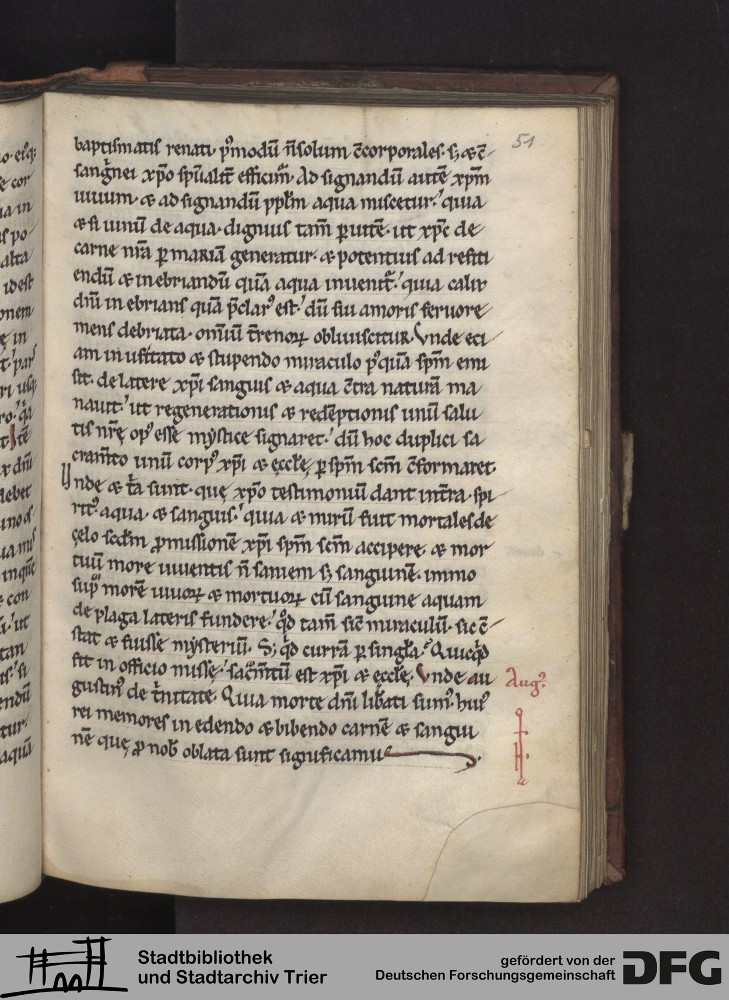 51
baptismatis renati. pꝰmodū ñ solum ɔ̄corporales. sꝫ & ɔ̄
sanguinei xp̄o sp̄ualit̄ efficim̄. Ad signandū autē xp̄m
uiuum. & ad signandū pp̄lm̄ aqua miscetur. quia
& si uinū de aqua. dignius tam̄ ꝑ uitē. ut xp̄c de
carne nr̄a ꝑ mariā generatur. & potentius ad refiti
endū & inebriandū quā aqua inuenit̄. quia calix
dn̄i inebrians quā p̄clarꝰ est. dū sui amoris feruore
mens debriata. om̄iū t̄renoꝝ obliuiscitur. Vnde eci
am inusitato & stupendo miraculo pꝰquā sp̄m emi
sit. de latere xp̄i sanguis & aqua ɔ̄tra naturā ma
nauit. ut regenerationis & redēptionis unū salu
tis nr̄ę opꝰ esse mystice signaret. dū hoc duplici sa
cram̄to unū corpꝰ xp̄i & ęccl̄ę ꝑ sp̄m sc̄m ɔ̄formaret.
Vnde & t̄a sunt. quę xp̄o testimoniū dant in t̄ra. spi
ritꝰ aqua. & sanguis. quia & mirū fuit mortales de
cęlo scd̄m ꝓmissionē xp̄i sp̄m sc̄m accipere. & mor
tuū more uiuentis ñ saniem sꝫ sanguinē. immo
sup̄ morē uiuoꝝ & mortuoꝝ cū sanguine aquam
de plaga lateris fundere. qd̄ tam̄ sic̄ miraculū. sic ɔ̄
stat & fuisse mysteriū. Sꝫ qd̄ currā ꝑ singl̄a. Quicqd̄
fit in officio missę. sacm̄tū est xp̄i & ęccl̄ę. Vnde au
gustinꝰ de t̄nitate. Quia morte dn̄i lib̄ati sumꝰ. huiꝰ
rei memores in edendo & bibendo carnē & sangui
nē quę ꝓ nob̄ oblata sunt significamus.
Augꝰ.
Stadtbibliothek
und Stadtarchiv Trier
gefördert von der
Deutschen Forschungsgemeinschaft
DFG